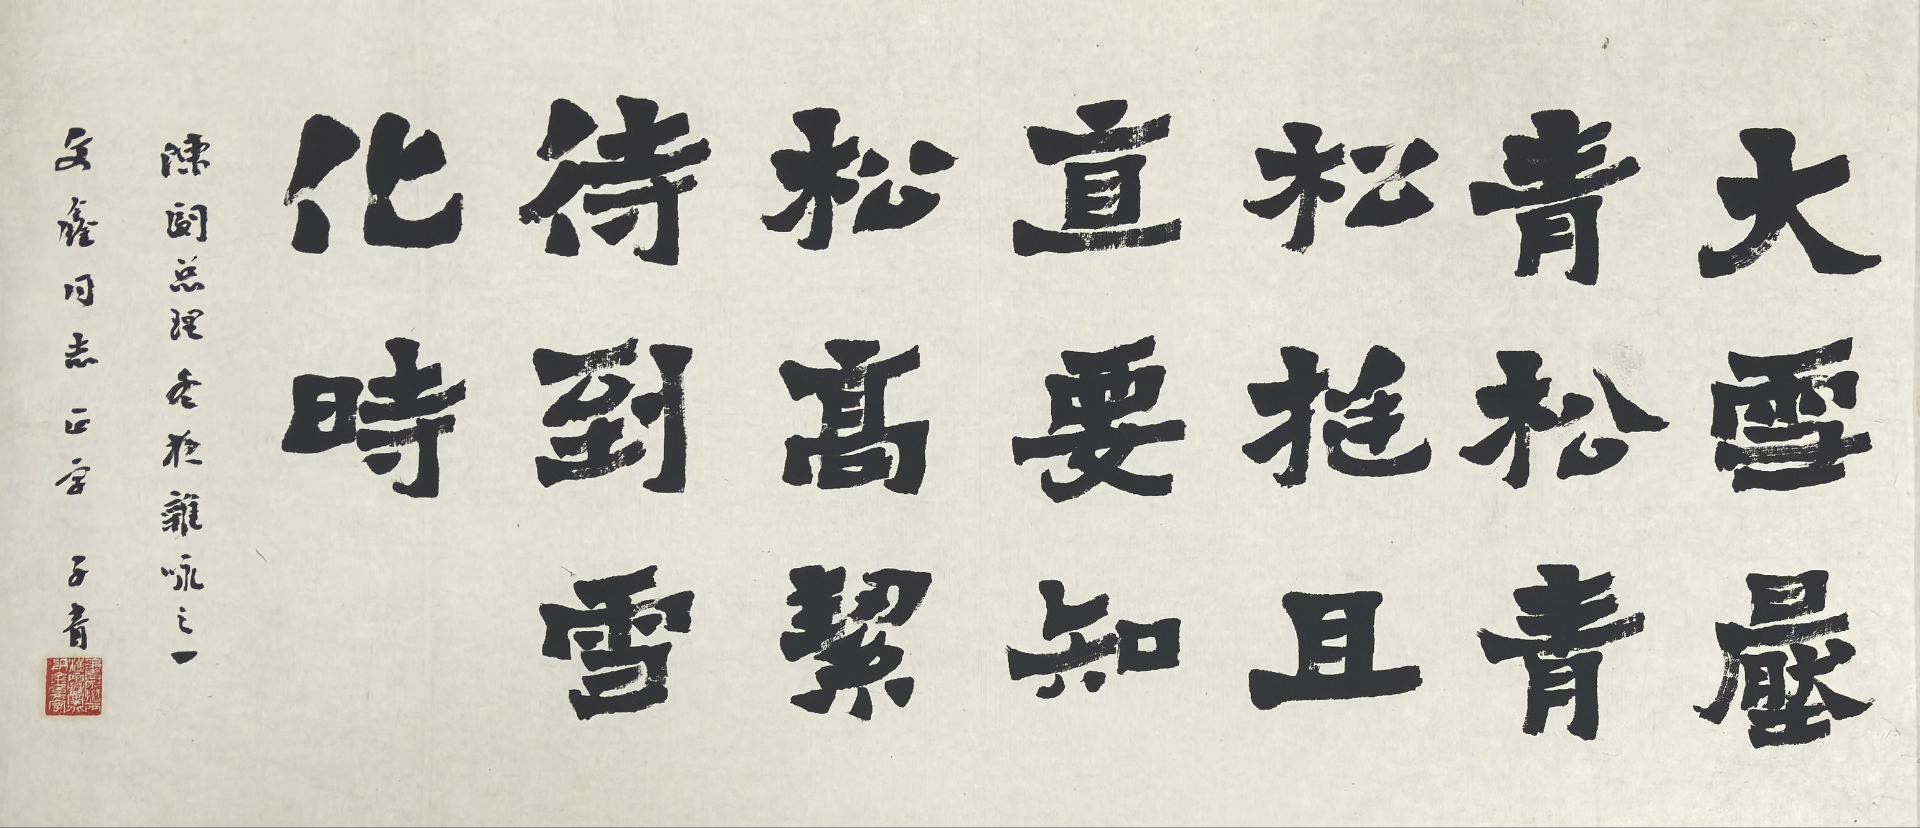 大雪壓
青松青
松挺且
直要知
松高絜
待到雪
化時
陳副总理冬夜雜咏之一
文鑫同志正字 子青